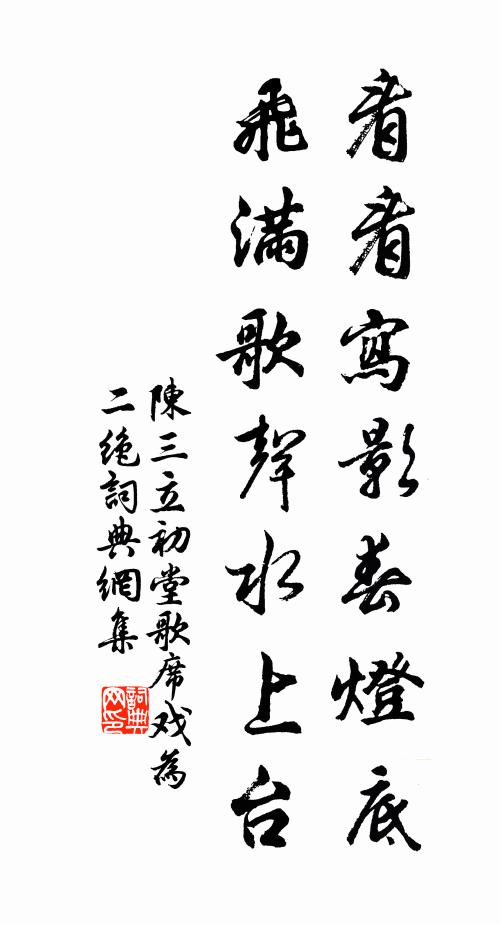 看看寫影春燈底
飛滿歌聲水上台
陳三立初堂歌席戏為
二絶詞典網集
詞典网印